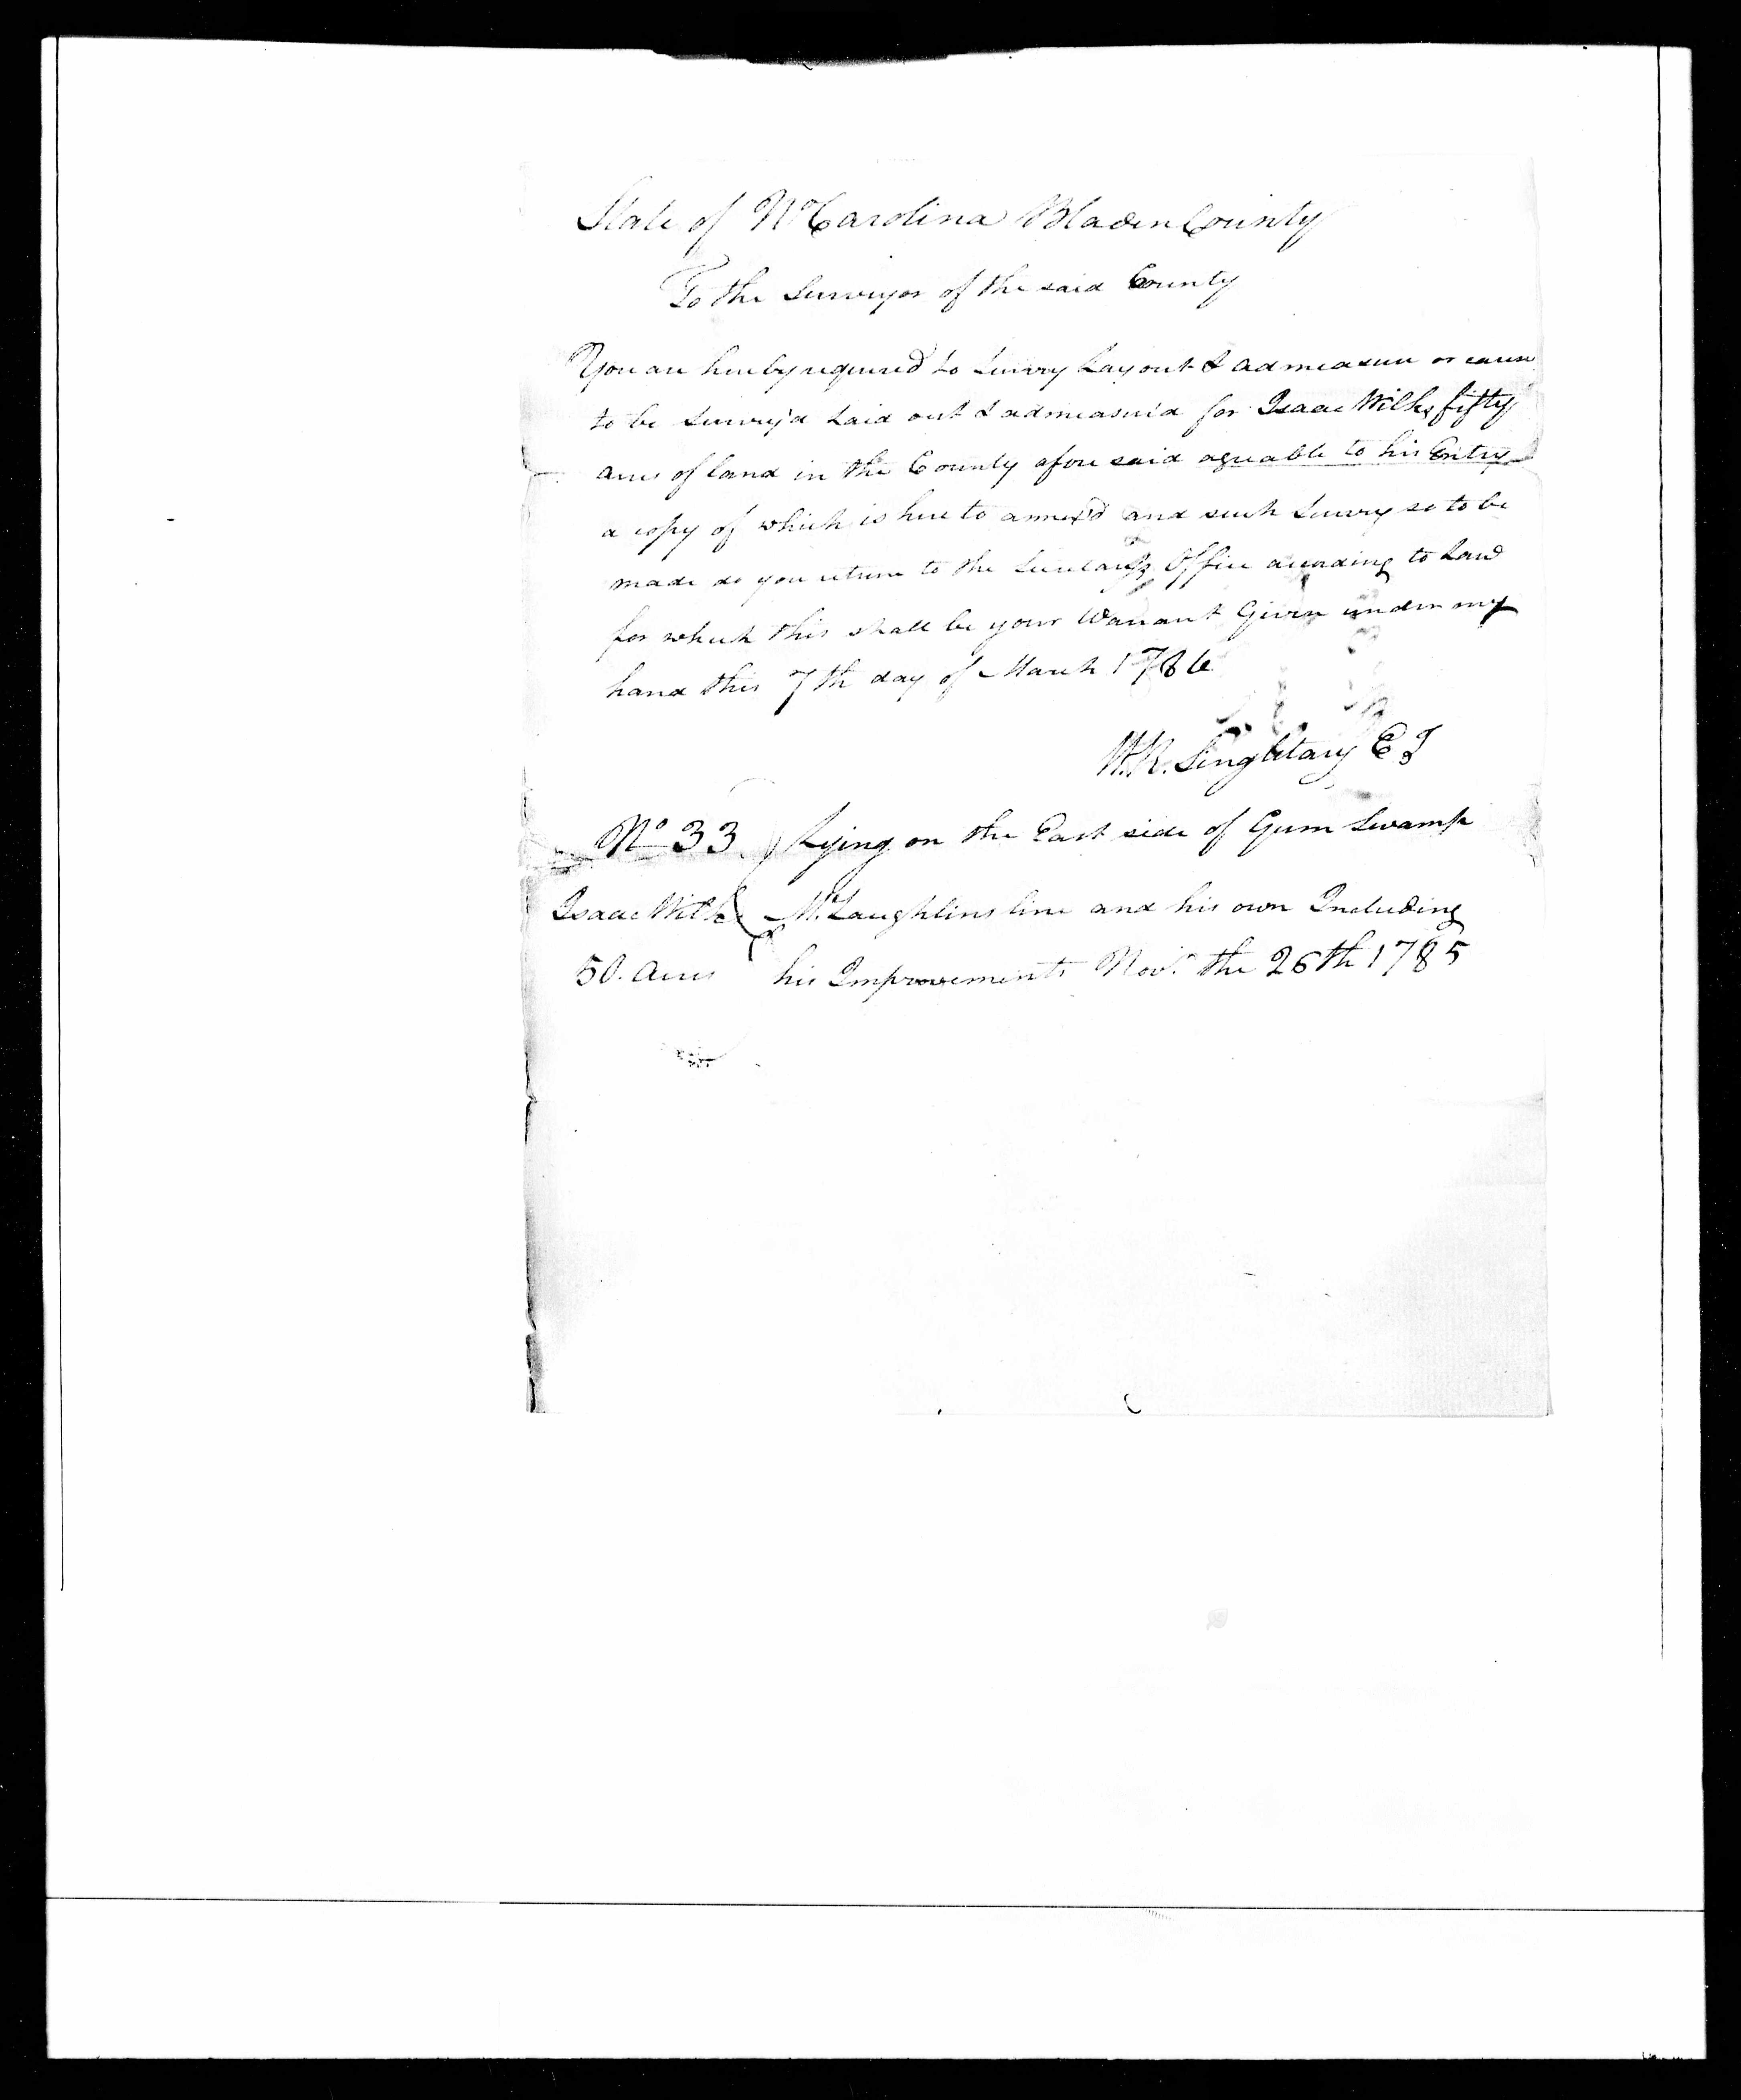 State of No Carolina Bladen County
To the Surveyor of the said County
You are hereby required to Survey Lay out & admeasure or cause
to be Survey'd Laid out & admeasur'd for Isaac Wilks fifty
acres of land in the County afore said agreable to his Entry
a copy of which is here to annex'd and such Survey so to be
made do you return to the Secretarys Office according to Law
for which this shall be your Warrant Given under my
hand this 7th day of March 1786
W.R. Singletary E T
No 33 Lying on the East side of Gum Swamp
Isaac Wilks McLaughlins line and his own Including
50. Acres his Improvements Novr. the 26th 1785